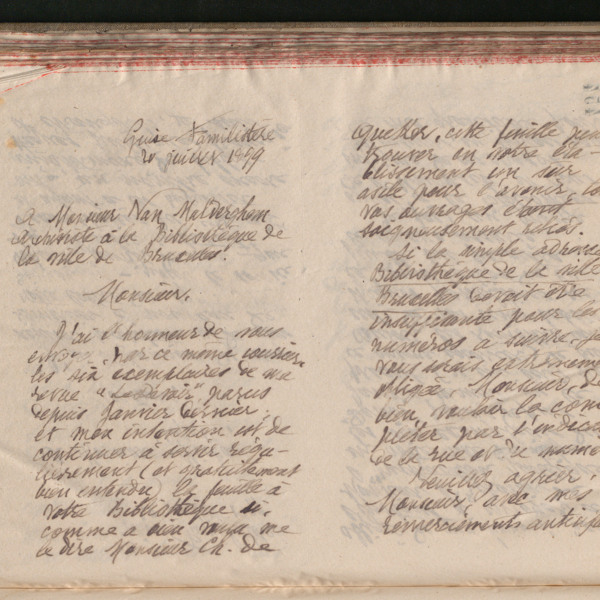 Guise Familistère
20 juillet 1899
A Monsieur Van Malderghem
Archiviste à la Bibliothèque de
la ville de Bruxelles.
Monsieur,
J'ai l'honneur de vous
envoyer par ce même courrier
les six exemplaires de ma
revue "Le Devoir" parus
depuis Janvier dernier;
et mon intention est de
continuer à servir régu-
lièrement (et gratuitement
bien entendu) la feuille à
votre Bibliothèque si,
comme a bien voulu me
le dire Monsieur Ch. de
Quekker, cette feuille peut
trouver en votre éta-
blissement un sûr
asile pour l'avenir,
vos ouvrages étant
soigneusement reliés.
Si la simple adresse
Bibliothèque de la ville
Bruxelles devait être
insuffisante pour les
numéros à suivre, je
vous serais extrêmement
obligée, Monsieur, de
bien vouloir la com-
pléter par l'indica
de la rue et du numéro
Veuillez agréer,
Monsieur, avec mes
remerciements anticipés